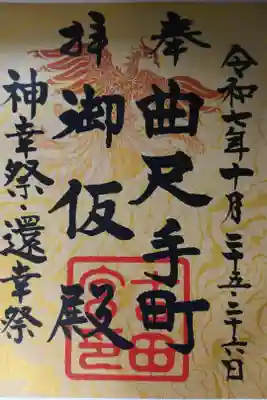 令和七年十月二十五・二十六日
奉 曲尺手町
拝 御仮殿
神幸祭・還幸祭